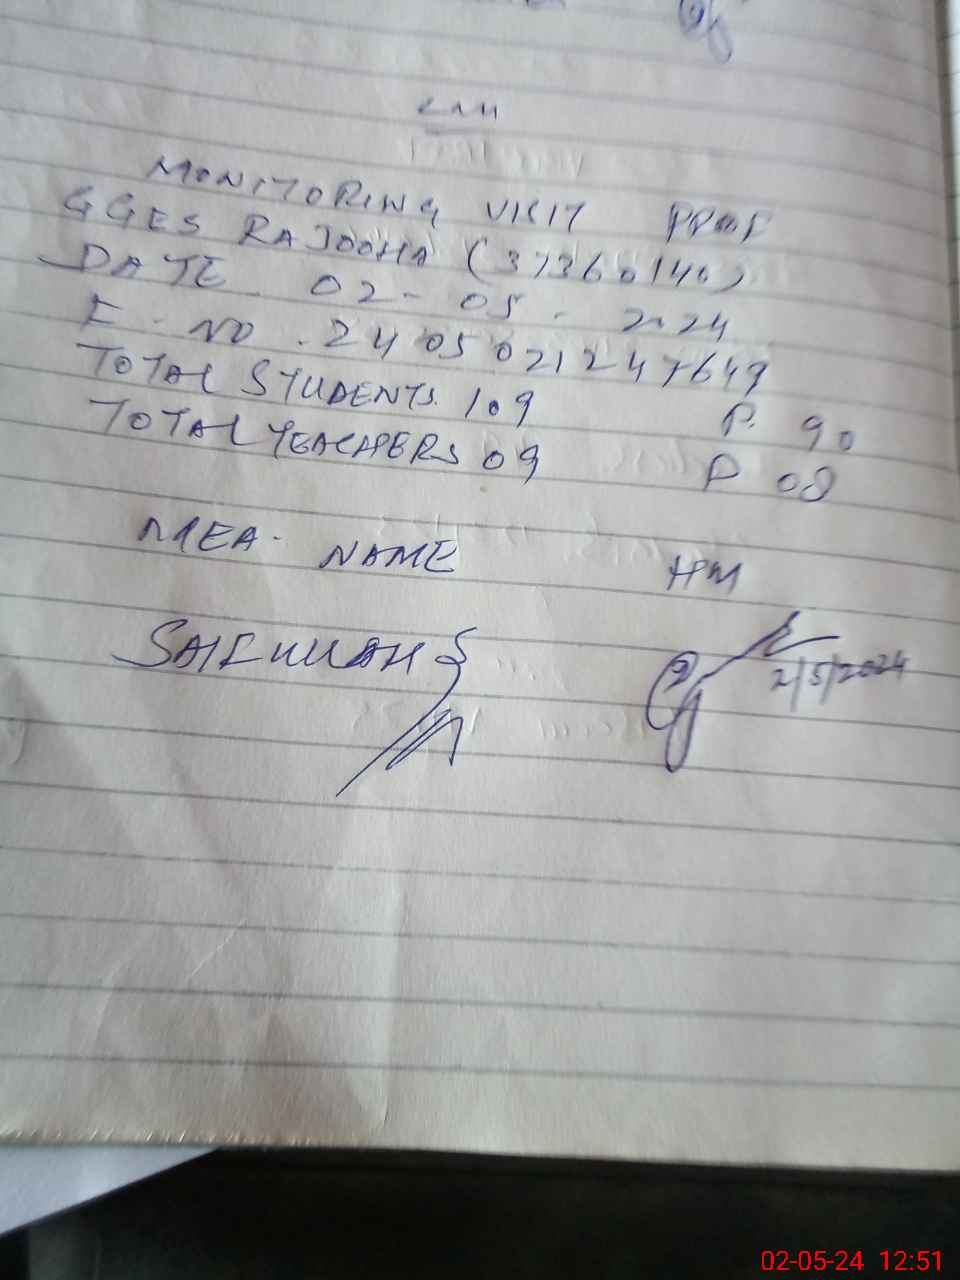 MONITORING VISIT PROOF
GGES RAJOOHA (37360140)
DATE 02-05-2024
E-NO.
TOTAL STUDENTS. 109 P. 90
TOTAL TEACHERS 09 P 08
MEA. NAME HM
SAIFULLAH
2/5/2024
02-05-24 12:51